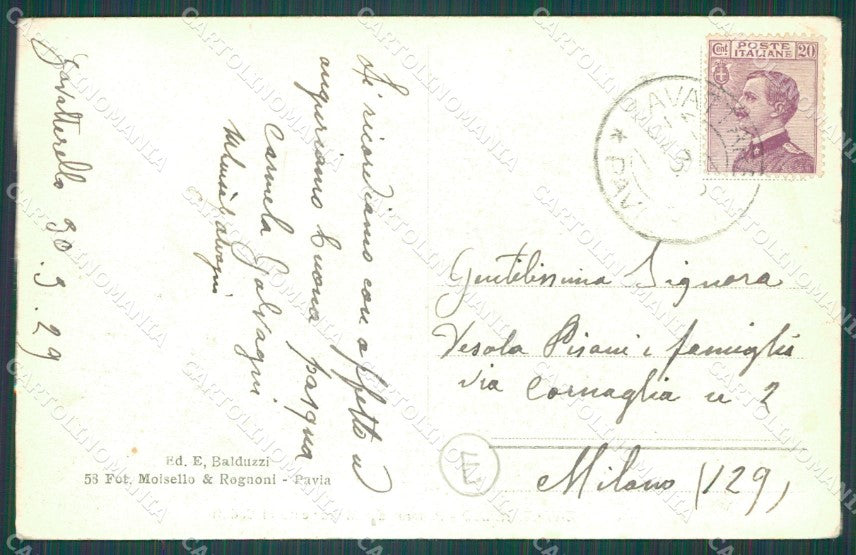 Zavatterello 30.3.29
Vi ricordiamo con affetto ed
auguriamo buona pasqua
Carmela Salvagni
Salvagni
Ed. E. Balduzzi
58 Fot. Moisello & Rognoni - Pavia
Cent. POSTE ITALIANE 20
ZAVATTAR
* PAV
Gentilissima Signora
Vesola Pisani e famiglia
Via Cornaglia n 2
Milano (129)
CARTOLINOMANIA